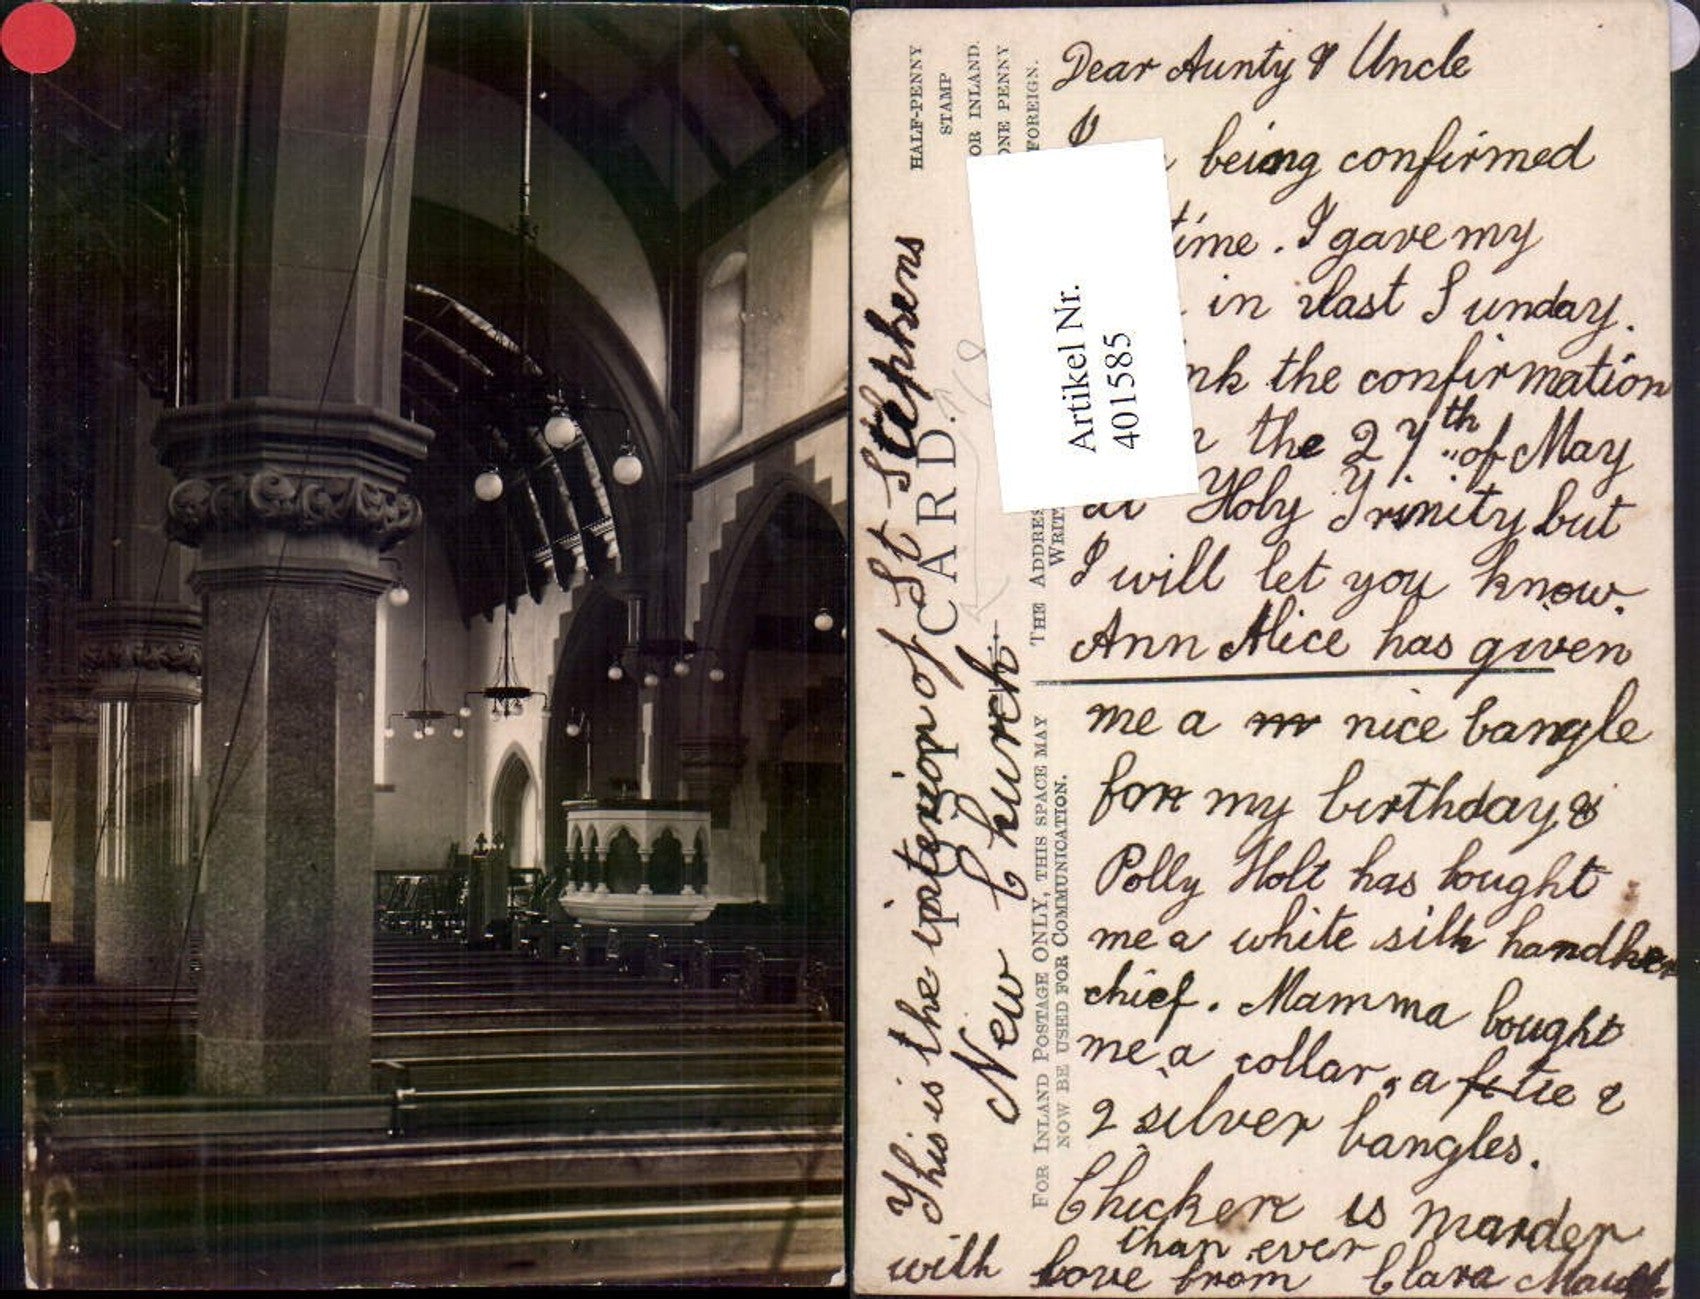 HALF-PENNY
STAMP
FOR INLAND.
ONE PENNY
FOREIGN.
CARD.
THE ADDRESS
WRITT
FOR INLAND POSTAGE ONLY, THIS SPACE MAY
NOW BE USED FOR COMMUNICATION.
Artikel Nr.
401585
This is the interior of St Stephens
New Church
Dear Aunty & Uncle
I being confirmed
time. I gave my
in last Sunday.
nk the confirmation
the 27th of May
at Holy Trinity but
I will let you know.
Ann Alice has given
me a nice bangle
for my birthday &
Polly Holt has bought
me a white silk handker
chief. Mamma bought
me a collar, a tie &
2 silver bangles.
Chicken is marder
than ever
with love from Clara Maud